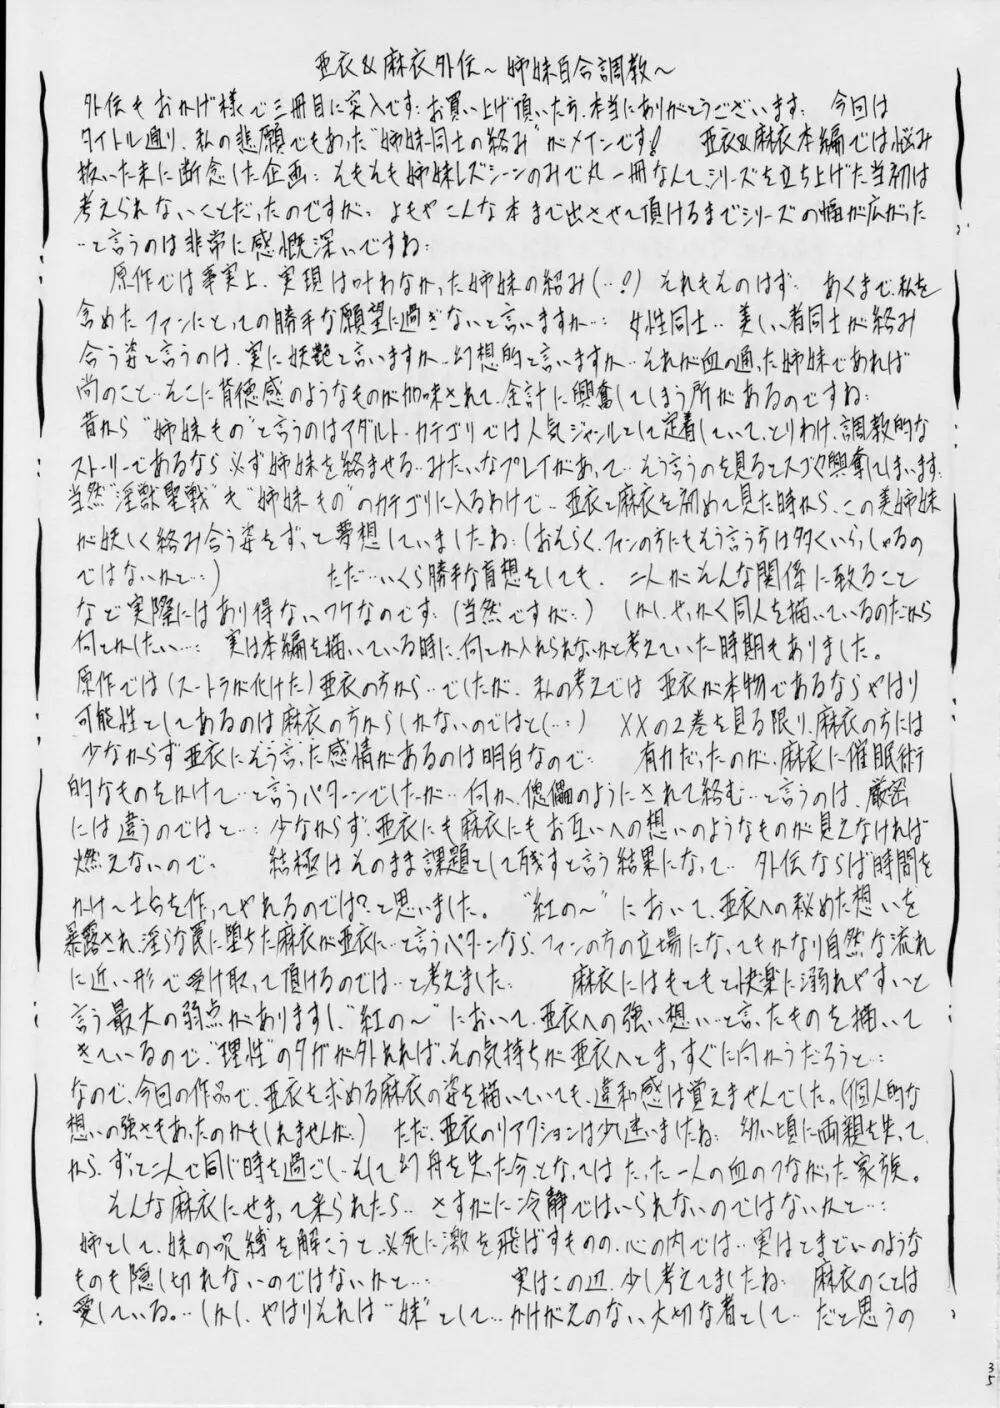 亜衣&麻衣外伝～姉妹百合調教～
外伝もおかげ様で三冊目に突入です… お買い上げ頂いた方、本当にありがとうございます… 今回は
タイトル通り、私の悲願でもあった"姉妹同士の絡み"がメインです! 亜衣&麻衣本編では悩み
抜いた末に断念した企画… そもそも姉妹レズシーンのみで丸一冊なんてシリーズを立ち上げた当初は
考えられないことだったのですが… よもやこんな本まで出させて頂けるまでシリーズの幅が広がった
…と言うのは非常に感慨深いですね…
原作では事実上、実現は叶わなかった姉妹の絡み(…!) それもそのはず… あくまで、私を
含めたファンにとっての勝手な願望に過ぎないと言いますか… 女性同士… 美しい者同士が絡み
合う姿と言うのは、実に妖艶と言いますか…幻想的と言いますか… それが血の通った姉妹であれば
尚のこと… そこに背徳感のようなものが加味されて、余計に興奮してしまう所があるのですね…
昔から"姉妹もの"と言うのはアダルト・カテゴリでは人気ジャンルとして定着していて、とりわけ、調教的な
ストーリーであるなら必ず姉妹を絡ませる…みたいなプレイがあって… そう言うのを見るとスゴく興奮してしまいます…
当然"淫獣聖戦"も"姉妹もの"のカテゴリに入るわけで… 亜衣と麻衣を初めて見た時から、この美姉妹
が妖しく絡み合う姿をずっと夢想していましたね… (おそらく、ファンの方にもそう言う方は多くいらっしゃるの
ではないかと…) ただ…いくら勝手な盲想をしても、二人がそんな関係に至ること
など実際にはあり得ないワケなのです… (当然ですが…) しかし、せっかく同人を描いているのだから
何とかしたい…… 実は本編を描いている時に、何とか入れられないかと考えていた時期もありました。
原作では(スートラが化けた)亜衣の方から…でしたが、私の考えでは亜衣が本物であるならやはり
可能性としてあるのは麻衣の方からしかないのではと(…) XXの2巻を見る限り、麻衣の方には
少なからず亜衣にそう言った感情があるのは明白なので… 有力だったのが、麻衣に催眠術
的なものをかけて…と言うパターンでしたが… 何か、傀儡のようにされて絡む…と言うのは、厳密
には違うのではと…… 少なからず、亜衣にも麻衣にもお互いへの想いのようなものが見えなければ
燃えないので… 結極はそのまま課題として残すと言う結果になって… 外伝ならば時間を
かけ〜土台を作ってやれるのでは?と思いました。 "紅の〜"において、亜衣への秘めた想いを
暴露され、淫らな罠に堕ちた麻衣が亜衣に…と言うパターンなら、ファンの方の立場になってもかなり自然な流れ
に近い形で受け取って頂けるのでは…と考えました… 麻衣にはもともと快楽に溺れやすいと
言う最大の弱点がありますし、"紅の〜"において、亜衣への強い想い…と言ったものを描いて
きているので、"理性"のタガが外れれば、その気持ちが亜衣へとまっすぐに向かうだろうと……
なので、今回の作品で、亜衣を求める麻衣の姿を描いていても、違和感は覚えませんでした。(個人的な
想いの強さもあったのかもしれませんが…) ただ、亜衣のリアクションは少し迷いましたね… 幼い頃に両親を失って
から、ずっと二人で同じ時を過ごし… そして幻舟を失った今となっては たった一人の血のつながった家族。
そんな麻衣にせまって来られたら… さすがに冷静ではいられないのではないかと……
姉として、妹の呪縛を解こうと必死に激を飛ばすものの、心の内では… 実はとまどいのような
ものも隠し切れないのではないかと…… 実はこの辺、少し考えてましたね… 麻衣のことは
愛している… しかし、やはりそれは"妹"として… かけがえのない大切な者として… だと思うの
35